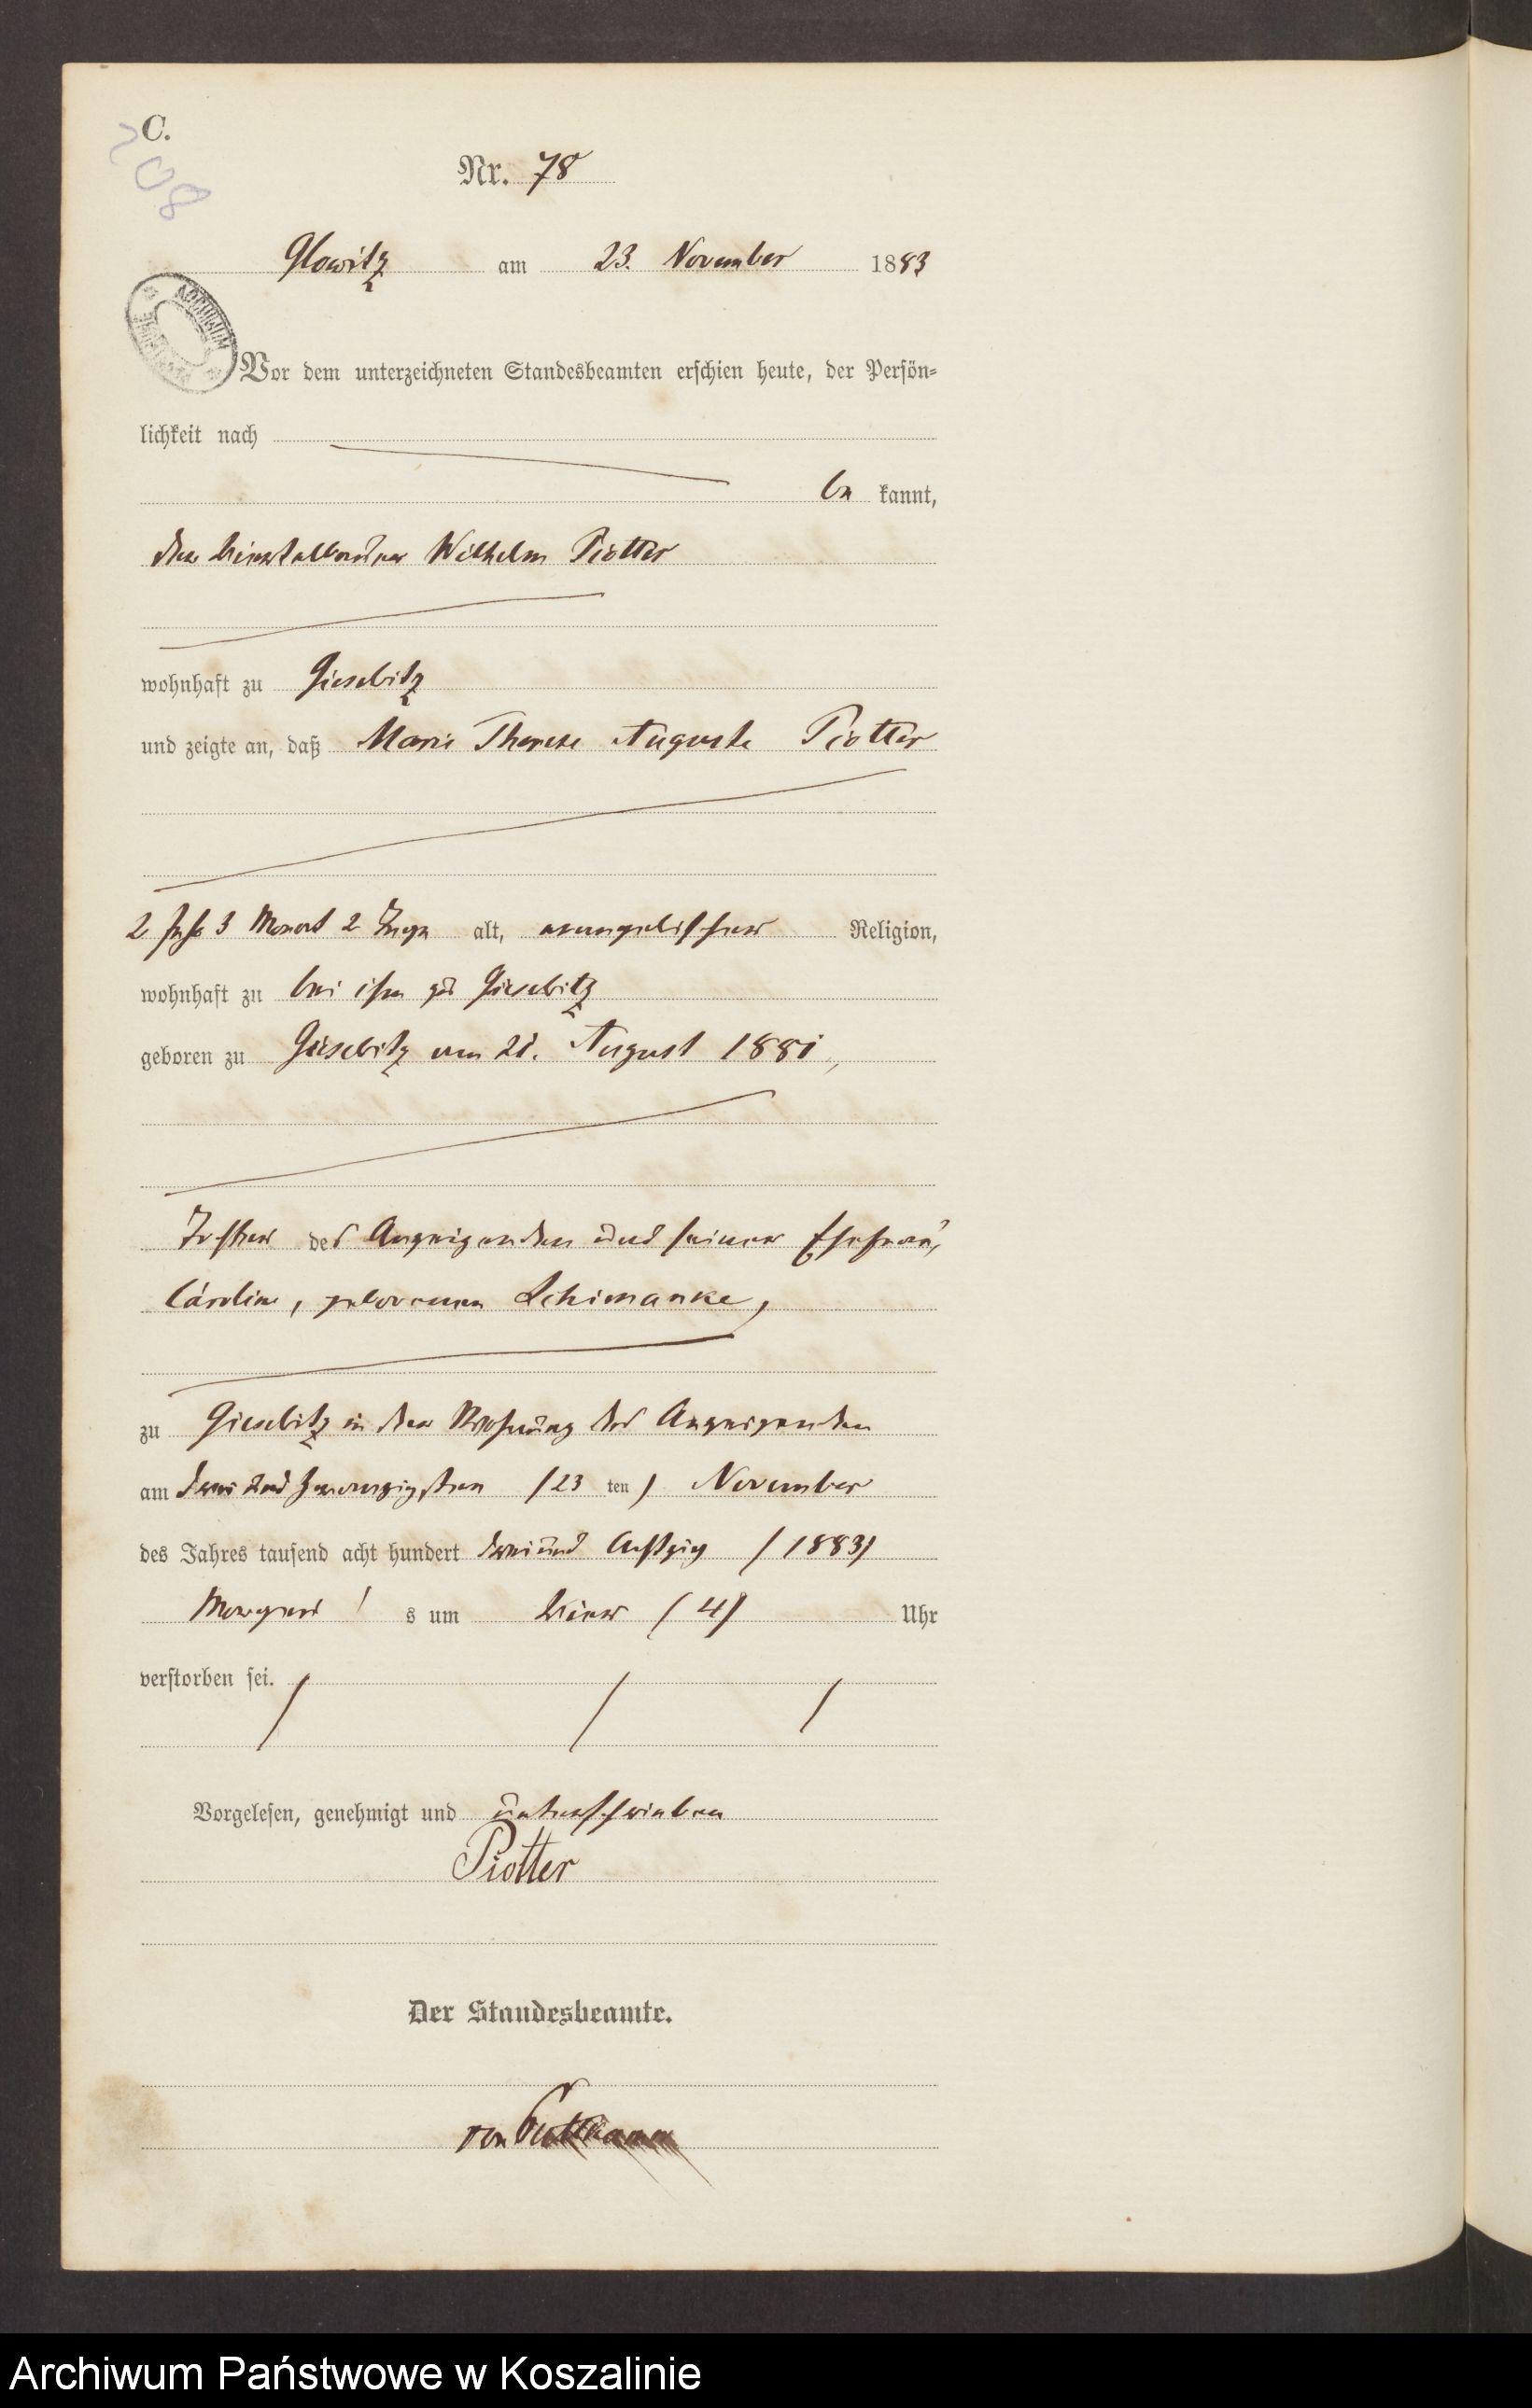 C.
208
Nr. 78
Glowitz am 23. November 1883
ARCHIWUM
Vor dem unterzeichneten Standesbeamten erschien heute, der Persön-
lichkeit nach
be kannt,
der Wilhelm Piotter
wohnhaft zu Giesebitz
und zeigte an, daß Marie Therese Auguste Piotter
2 Jahr 3 Monat 2 Tage alt, evangelischer Religion,
wohnhaft zu bei ihm zu Giesebitz
geboren zu Giesebitz am 21. August 1881,
Tochter des Anzeigenden und seiner Ehefrau,
Caroline, geborenen Schimanke,
zu Giesebitz in der Wohnung des Anzeigenden
am drei und zwanzigsten /23 ten/ November
des Jahres tausend acht hundert drei und Achtzig /1883/
Morgens s um Vier /4/ Uhr
verstorben sei.
Vorgelesen, genehmigt und unterschrieben
Piotter
Der Standesbeamte.
von Puttkamer
Archiwum Państwowe w Koszalinie